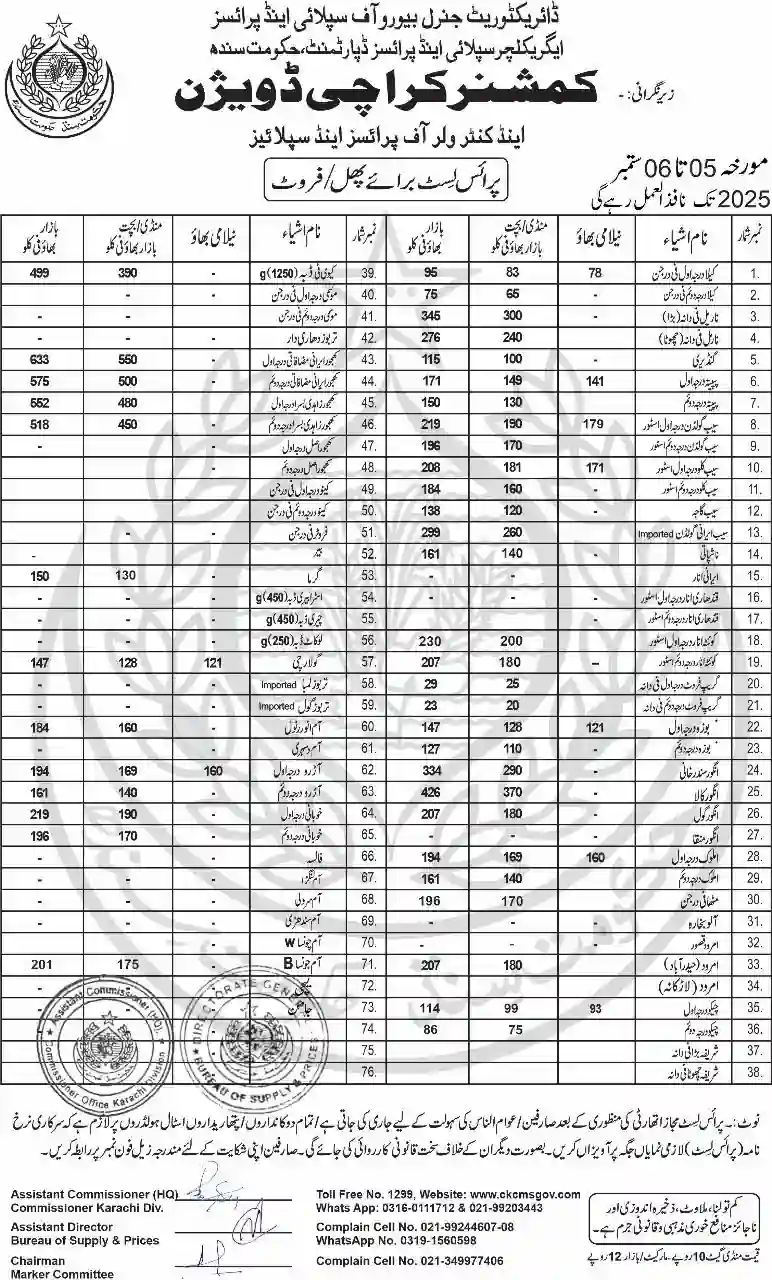 ڈائریکٹوریٹ جنرل بیورو آف سپلائی اینڈ پرائسز
ایگریکلچر سپلائی اینڈ پرائسز ڈپارٹمنٹ، حکومت سندھ
زیر نگرانی:- کمشنر کراچی ڈویژن
اینڈ کنٹرولر آف پرائسز اینڈ سپلائیز
مورخہ 05 تا 06 ستمبر
2025 تک نافذ العمل رہے گی
پرائس لسٹ برائے پھل/ فروٹ
نمبر شمار نام اشیاء نیلامی بھاؤ منڈی/بچت بازار بھاؤ فی کلو بازار بھاؤ فی کلو
1. کیلا درجہ اول فی درجن 78 83 95
2. کیلا درجہ دوئم فی درجن - 65 75
3. ناریل فی دانہ (بڑا) - 300 345
4. ناریل فی دانہ (چھوٹا) - 240 276
5. گنڈیری - 100 115
6. پپیتہ درجہ اول 141 149 171
7. پپیتہ درجہ دوئم - 130 150
8. سیب گولڈن درجہ اول اسٹور 179 190 219
9. سیب گولڈن درجہ دوئم اسٹور - 170 196
10. سیب کلو درجہ اول اسٹور 171 181 208
11. سیب کلو درجہ دوئم اسٹور - 160 184
12. سیب گاچہ - 120 138
13. سیب ایرانی گولڈن Imported - 260 299
14. ناشپاتی - 140 161
15. ایرانی انار - - -
16. قندھاری انار درجہ اول اسٹور - - -
17. قندھاری انار درجہ دوئم اسٹور - - -
18. کوئٹہ انار درجہ اول اسٹور 200 230
19. کوئٹہ انار درجہ دوئم اسٹور – 180 207
20. گریپ فروٹ درجہ اول فی دانہ - 25 29
21. گریپ فروٹ درجہ دوئم فی دانہ - 20 23
22. بوزہ درجہ اول 121 128 147
23. بوزہ درجہ دوئم - 110 127
24. انگور سندرخانی - 290 334
25. انگور کالا - 370 426
26. انگور گول - 180 207
27. انگور منقا - - -
28. املوک درجہ اول 160 169 194
29. املوک درجہ دوئم - 140 161
30. مٹھا فی درجن - 170 196
31. آلو بخارہ
32. امرود قصور - - -
33. امرود (حیدرآباد) 180 207
34. امرود (لاڑکانہ)
35. چیکو درجہ اول 93 99 114
36. چیکو درجہ دوئم 75 86
37. شریفہ بڑا فی دانہ
38. شریفہ چھوٹا فی دانہ
نمبر شمار نام اشیاء نیلامی بھاؤ منڈی/بچت بازار بھاؤ فی کلو بازار بھاؤ فی کلو
39. کیوی فی ڈبہ (1250)g - 390 499
40. موسمی درجہ اول فی درجن - - -
41. موسمی درجہ دوئم فی درجن - -
42. تربوز دھاری دار - - -
43. کھجور ایرانی مضافاتی درجہ اول - 550 633
44. کھجور ایرانی مضافاتی درجہ دوئم - 500 575
45. کھجور زاہدی بسرا درجہ اول - 480 552
46. کھجور زاہدی بسرا درجہ دوئم - 450 518
47. کھجور اصل درجہ اول -
48. کھجور اصل درجہ دوئم -
49. کینو درجہ اول فی درجن
50. کینو درجہ دوئم فی درجن
51. فروٹر فی درجن - -
52. بیر -
53. گرما - 130 150
54. اسٹرابیری ڈبہ (450)g - - -
55. چیری ڈبہ (450)g - - -
56. لوکاٹ ڈبہ (250)g - -
57. گولارچی 121 128 147
58. تربوز لمبا Imported - - -
59. تربوز گول Imported - - -
60. آم انور رٹول - 160 184
61. آم دسہری - - -
62. آڑو درجہ اول 160 169 194
63. آڑو درجہ دوئم - 140 161
64. خوبانی درجہ اول - 190 219
65. خوبانی درجہ دوئم - 170 196
66. فالسہ - - -
67. آم لنگڑا - - -
68. آم سرولی - - -
69. آم سندھڑی - - -
70. آم چونسا W -
71. آم چونسا B - 175 201
72. لیچی - - -
73. جامن - -
74.
75.
76.
Assistant Commissioner (HQ)
Commissioner Office Karachi Division
DIRECTORATE GENERAL
BUREAU OF SUPPLY & PRICES
نوٹ:۔ پرائس لسٹ مجاز اتھارٹی کی منظوری کے بعد صارفین/ عوام الناس کی سہولت کے لیے جاری کی جاتی ہے/ تمام دوکانداروں/ پتھاریداروں اسٹال ہولڈروں پر لازم ہے کہ سرکاری نرخ
نامہ (پرائس لسٹ) لازمی نمایاں جگہ پر آویزاں کریں۔ بصورت دیگر ان کے خلاف سخت قانونی کارروائی کی جائے گی۔ صارفین اپنی شکایت کے لئے مندرجہ زیل فون نمبر پر رابطہ کریں۔
Assistant Commissioner (HQ)
Commissioner Karachi Div.
Assistant Director
Bureau of Supply & Prices
Chairman
Marker Committee
Toll Free No. 1299, Website: www.ckcmsgov.com
Whats App: 0316-0111712 & 021-99203443
Complain Cell No. 021-99244607-08
WhatsApp No. 0319-1560598
Complain Cell No. 021-349977406
کم تولنا، ملاوٹ، ذخیرہ اندوزی اور
ناجائز منافع خوری مذہبی و قانونی جرم ہے۔
قیمت منڈی گیٹ 10 روپے۔ مارکیٹ/ بازار 12 روپے